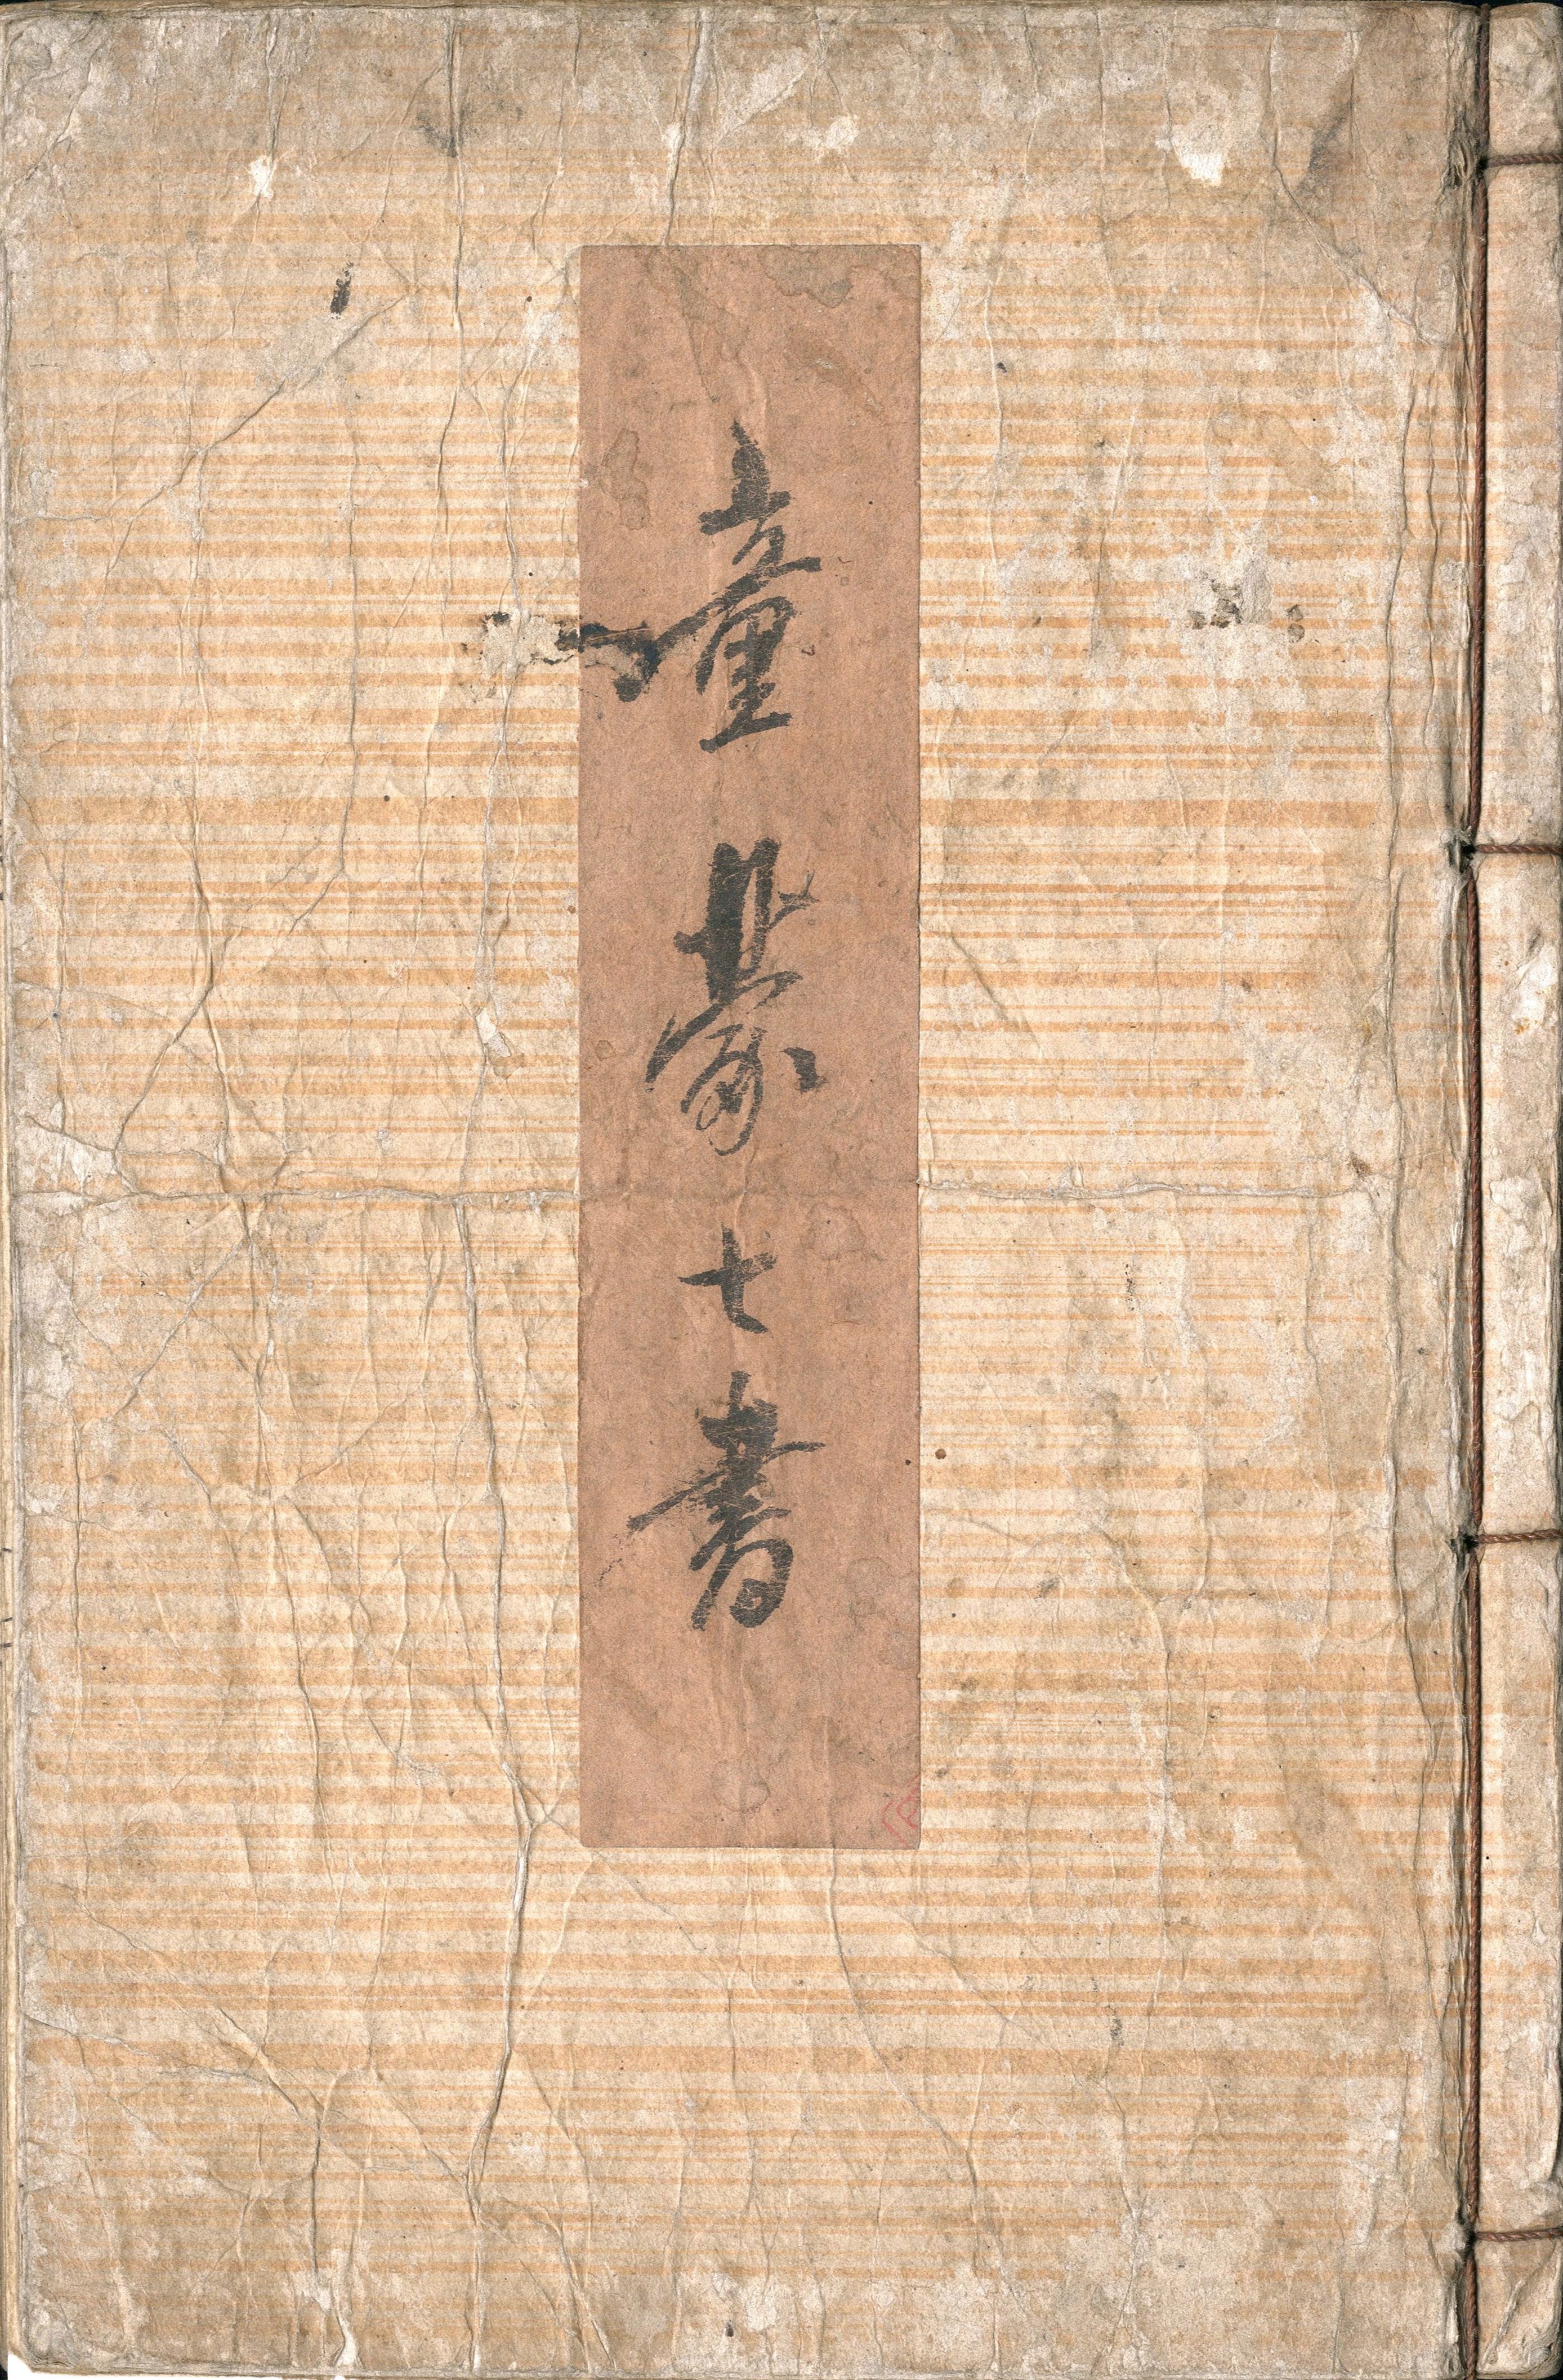 童蒙七書